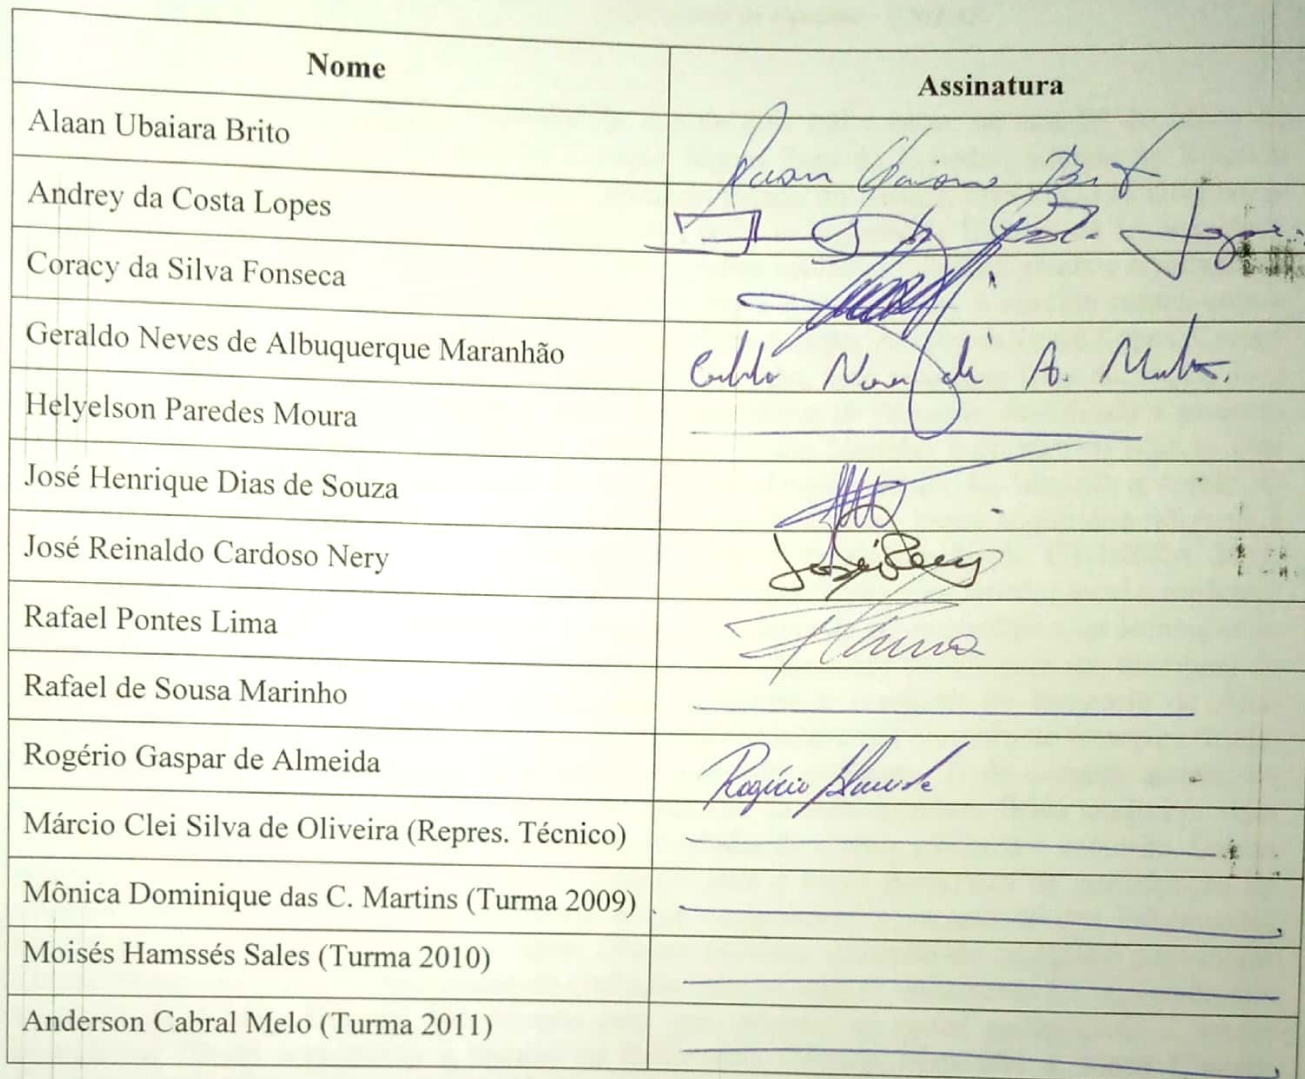 Nome Assinatura
Alaan Ubaiara Brito
Andrey da Costa Lopes
Coracy da Silva Fonseca
Geraldo Neves de Albuquerque Maranhão
Helyelson Paredes Moura
José Henrique Dias de Souza
José Reinaldo Cardoso Nery
Rafael Pontes Lima
Rafael de Sousa Marinho
Rogério Gaspar de Almeida Rogério Almeida
Márcio Clei Silva de Oliveira (Repres. Técnico)
Mônica Dominique das C. Martins (Turma 2009)
Moisés Hamssés Sales (Turma 2010)
Anderson Cabral Melo (Turma 2011)